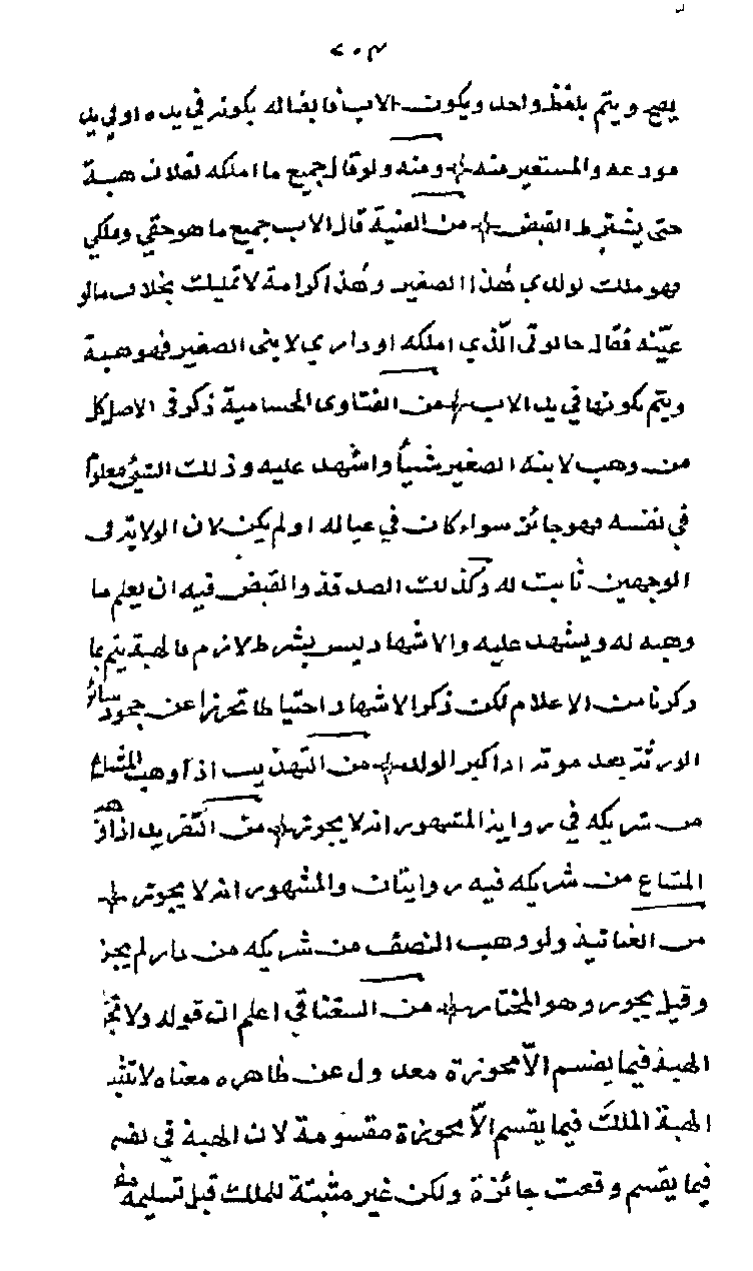 ٢٠٣
يصح ويتم بلفظ واحد ويكون الاب قابضا له بكونه في يده او في يد
مودعه والمستعير منه ومنه ولو قال جميع ما املكه لفلان هبة
حتى يشترط القبض من الغنية قال الاب جميع ما هو حقي وملكي
فهو ملك لولدي هذا الصغير وهذا كرامة لا تمليك بخلاف ما لو
عينه فقال حانوتي الذي املكه او داري لابني الصغير فهو هبة
ويتم بكونها في يد الاب من الفتاوى الحسامية ذكر في الاصل كل
من وهب لابنه الصغير شيأ واشهد عليه وذلك الشئ معلوم
في نفسه فهو جائز سواء كان في عياله او لم يكن لان الولاية في
الوجهين ثابت له وكذلك الصدقة والقبض فيه ان يعلم ما
وهبه له ويشهد عليه والاشهاد ليس بشرط لازم فالهبة يتم بما
ذكرنا من الاعلام لكن ذكر الاشهاد احتياطا تحرزا عن جحود سائر
الورثة بعد موته اذا كبر الولد من التهذيب اذا وهب المشاع
من شريكه في رواية المشهور انه لا يجوز من التفريد اذا وهب
المشاع من شريكه فيه روايتان والمشهور انه لا يجوز
من الغياثية ولو وهب النصف من شريكه من دار لم يجز
وقيل يجوز وهو المختار من السغناقي اعلم ان قوله ولا تجوز
الهبة فيما يقسم الا محوزة معدول عن ظاهره معناه لا تثبت
الهبة الملك فيما يقسم الا محوزة مقسومة لان الهبة في نفسه
فيما يقسم وقعت جائزة ولكن غير مثبتة للملك قبل تسليمه